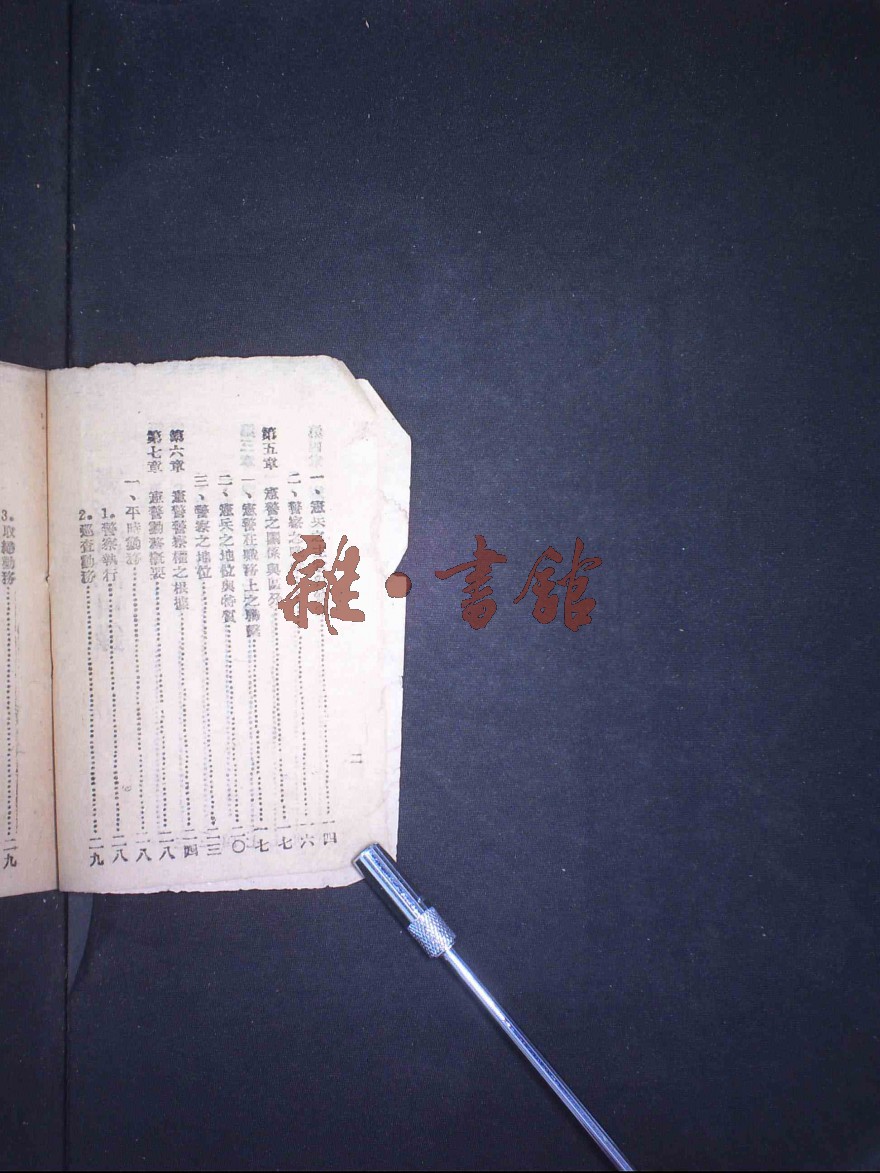 一、憲兵……一四
二、警察之……一六
第五章 憲警之關係與區別……一七
一、憲警在職務上之聯繫……一七
二、憲兵之地位與特質……二〇
三、警察之地位……二三
第六章 憲警警察權之根據……二四
第七章 憲警勤務概要……二八
一、平時勤務……二八
1。警察執行……二八
2。巡查勤務……二九
3。取締勤務……二九
二
雜·書館